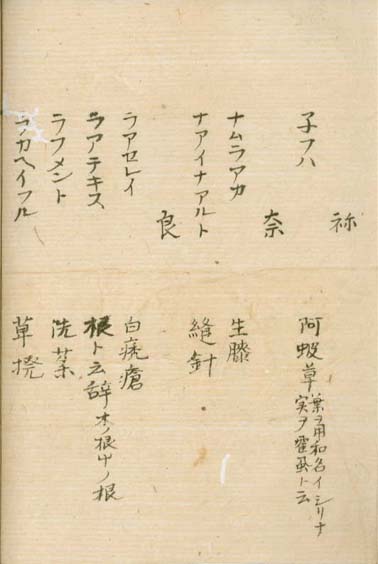 祢
子フハ 阿蝦草 葉ヲ用和名イシリナ
実ヲ蜜ト云
奈
ナムラアカ 生膝
ナアイナアルト 縫針
良
ラアセレイ 白瘡
ラアテキス 根ト云辞 木ノ根ノ根
ラフメント 洗薬
ラカヘイフル 草